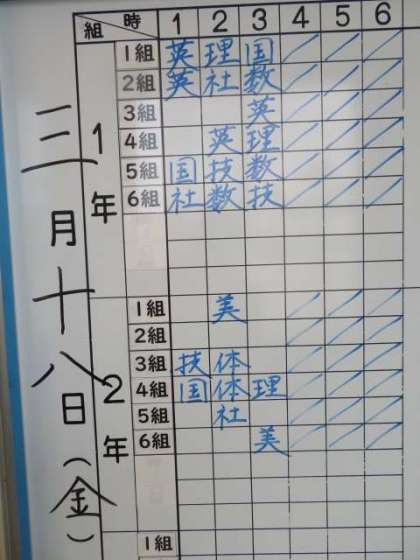 三月十八日(金)
組 時 1 2 3 4 5 6
1年
1組 英 理 国 / / /
2組 英 社 数 / / /
3組 英 / / /
4組 英 理 / / /
5組 国 技 数 / / /
6組 社 数 技 / / /
2年
1組 美 / / /
2組 / / /
3組 技 体 / / /
4組 国 体 理 / / /
5組 社 / / /
6組 美 / / /
1組